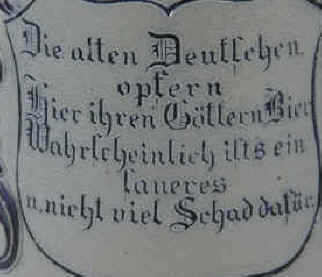 Die alten Deutschen
opfern
Hier ihren Göttern Bier
Wahrscheinlich ists ein
saueres
u. nicht viel Schad dafür.